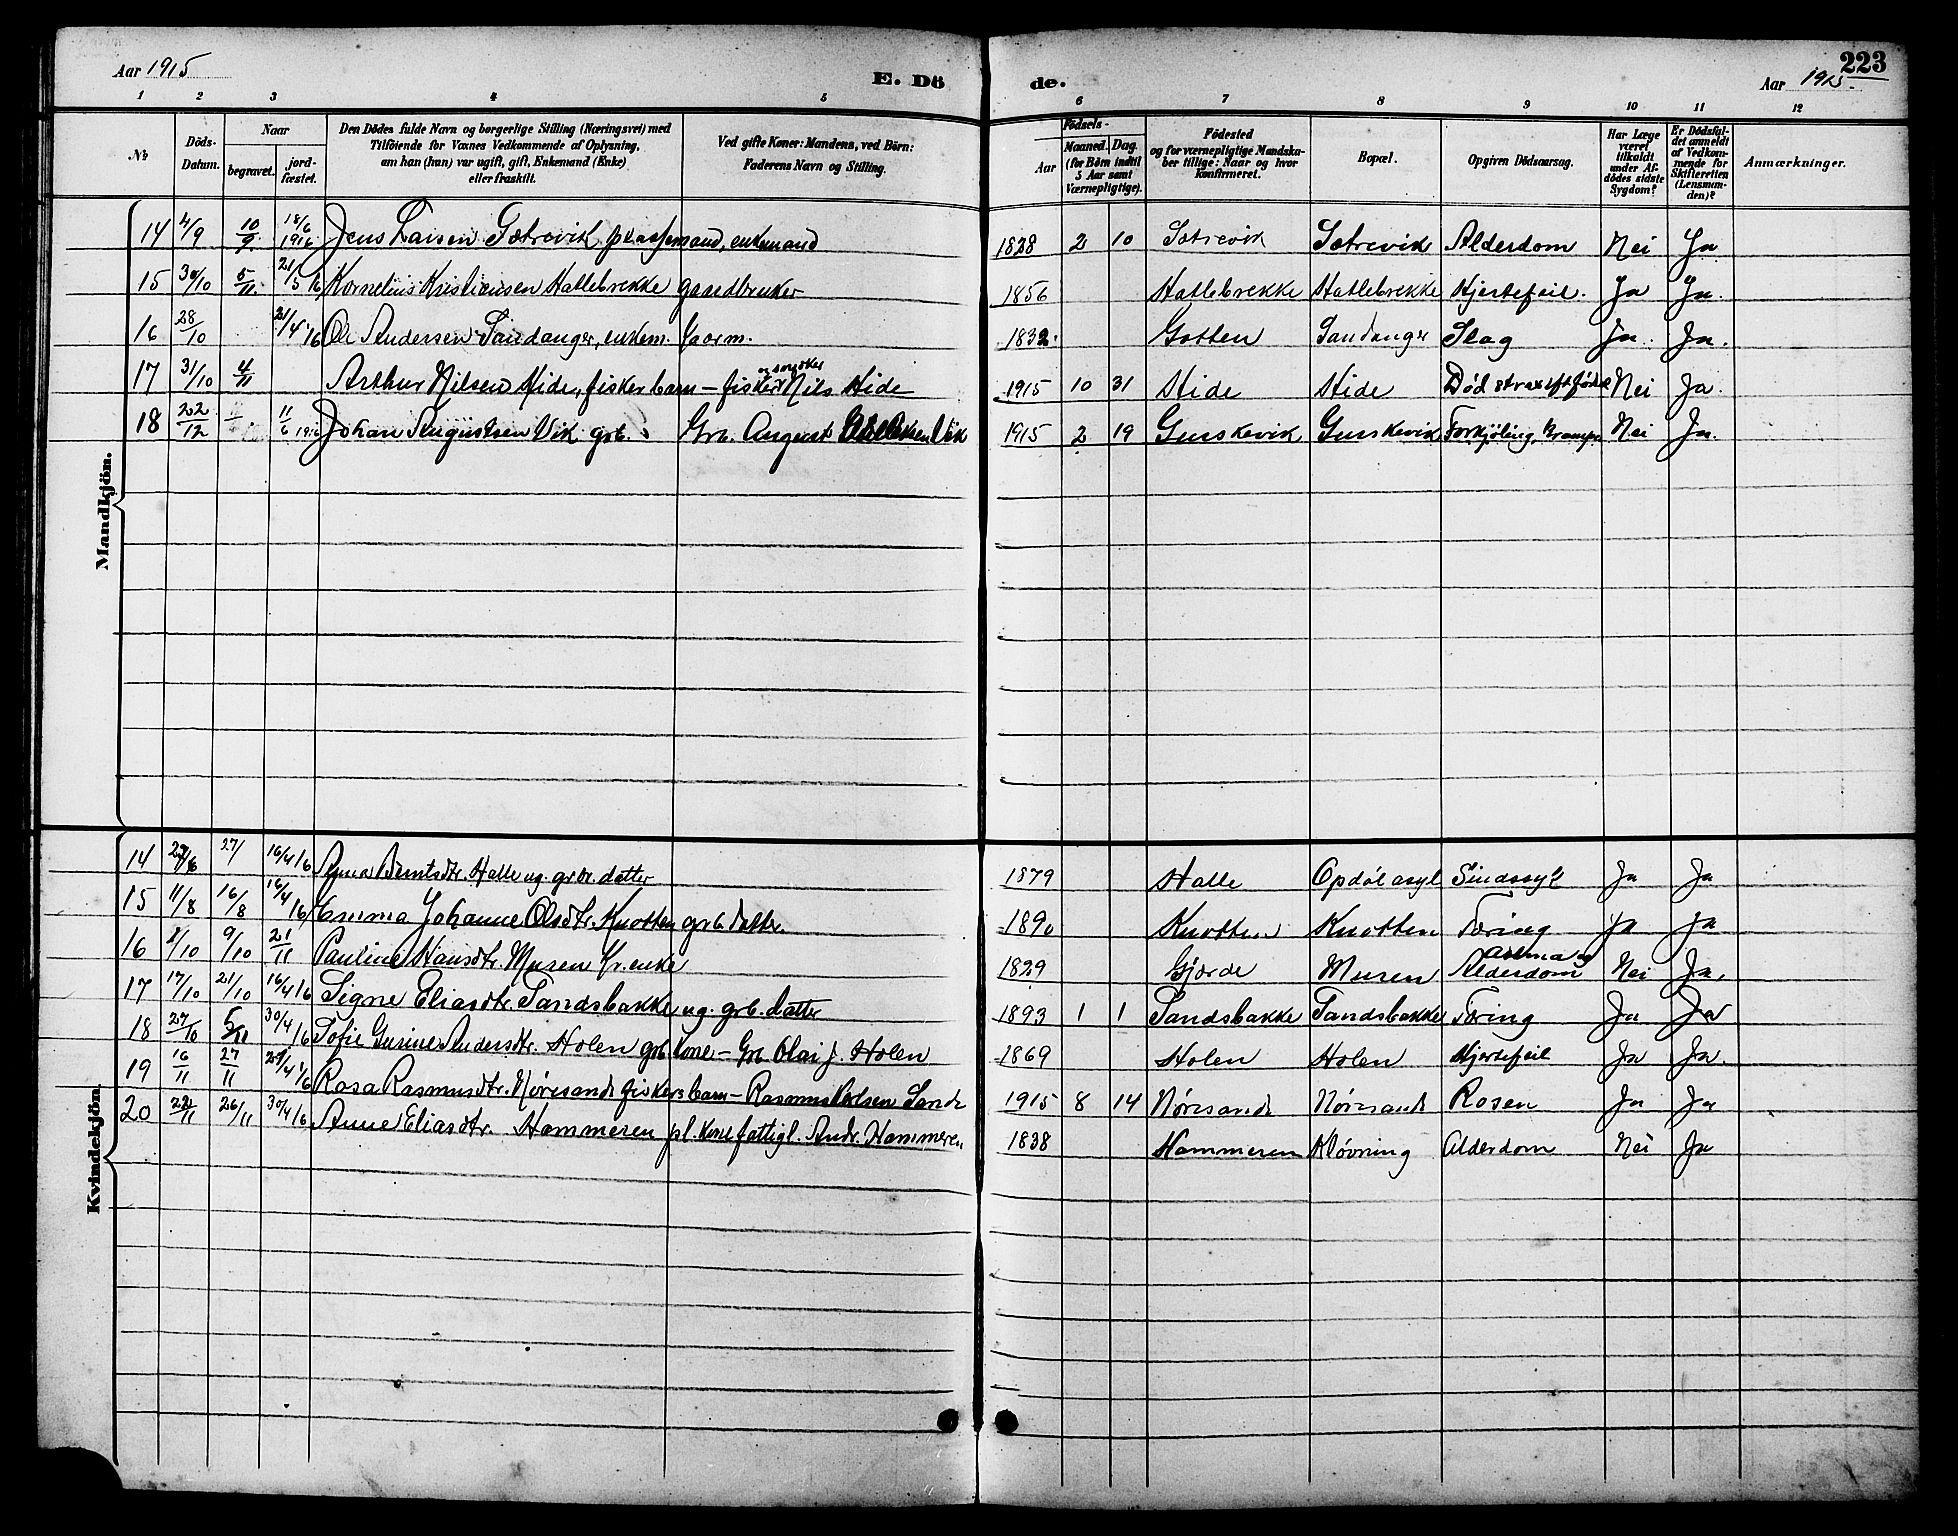 223
Aar 1915
E. Dö de.
Aar 1915.
1 2 3 4 5 6 7 8 9 10 11 12
№
Döds-Datum.
Naar
begravet.
jord-fæstet.
Den Dödes fulde Navn og borgerlige Stilling (Næringsvei) med
Tilföiende for Voxnes Vedkommende af Oplysning,
om han (hun) var ugift, gift, Enkemand (Enke)
eller fraskilt.
Ved gifte Koner: Mandens, ved Börn:
Faderens Navn og Stilling.
Födsels-
Aar
Maaned. Dag.
(for Börn indtil
5 Aar samt
Værnepligtige).
Födested
og for værnepligtige Mandska-
ber tillige: Naar og hvor
konfirmeret.
Bopæl.
Opgiven Dödsaarsag.
Har Læge
været
tilkaldt
under Af-
dödes sidste
Sygdom?
Er Dödsfal-
det anmeldt
af Vedkom-
mende for
Skifteretten
(Lensman-
den)?
Anmærkninger.
Mandkjön.
14 4/9 10/9 18/6 1916 Jens Larsen Sætrevik plassemand, enkemand 1828 2 10 Sætrevik Sætrevik Alderdom Nei Ja
15 30/10 5/11 21/5 16 Kornelius Kristiansen Hatlebrekke gaardbruker 1856 Hatlebrekke Hatlebrekke Hjertefeil. Ja Ja.
16 28/10 21/4 16 Ole Andersen Sandanger, enkem. Gaarm. 1832. Gotten Sandanger Slag Ja. Ja.
17 31/10 4/11 Arthur Nilsen Hide, fisker barn – fisker Nils Hide 1915 10 31 Hide Hide Død strax eft. føds. Nei Ja.
18 22/12 11/6 1916 Johan Augustsen Vik grb. Grb. August Vik 1915 2 19 Gurskevik Gurskevik Forkjøling, Krampe Nei Ja.
Kvindekjön.
14 27/6 27/ 16/4 16 Anna Berntsdtr. Halle ug. grbr. datter 1879 Halle Opdøl asyl Sindssyk Ja Ja
15 11/8 16/8 16/4 16 Emma Johanne Olsdtr. Knotten grb. datter. 1890 Knotten Knotten Tæring Ja Ja
16 2/10 9/10 21/11 Pauline Hansdtr. Musen kr. enke 1829 Gjerde Musen Astma og Alderdom Nei Ja.
17 17/10 21/10 16/4 16 Signe Eliasdtr. Sandsbakke ug. grb. datter 1893 1 1 Sandsbakke Sandsbakke Tæring Ja Ja
18 27/10 5/11 30/4 16 Sofie Gurine Andersdtr. Holen grb. kone – Grb. Olai J. Holen 1869 Holen Holen Hjertefeil Ja Ja.
19 16/11 27/11 24/4 16 Rasa Rasmusdtr. Nøresande fiskers barn – Rasmus Karlsen Sande 1915 8 14 Nøresande Nøresande Rosen Ja Ja
20 22/11 26/11 30/4 16 Anne Eliasdtr. Hammeren pl. kone fattigl. Andr. Hammeren 1838 Hammeren Kløvning Alderdom Nei Ja